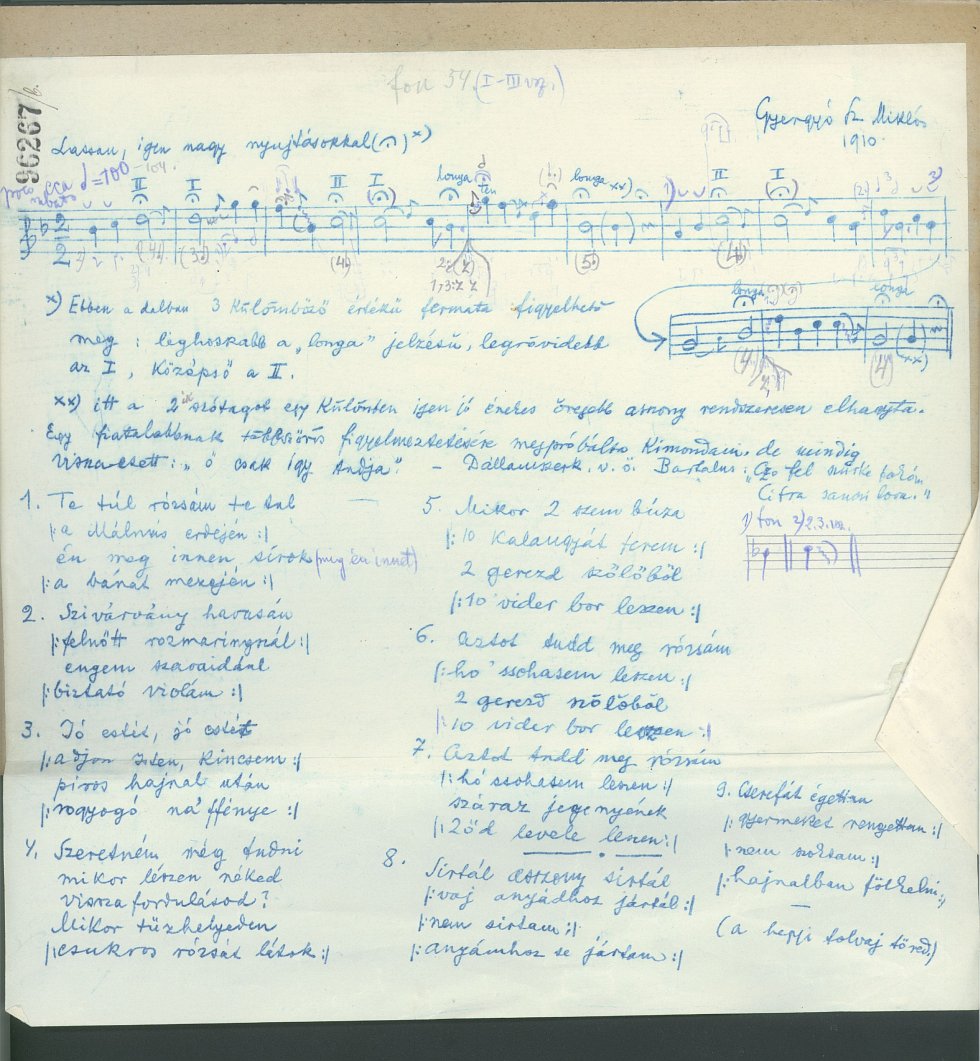 fon 54. (I-III vsz.)
96267/b.
Gyergyó Sz. Miklós
1910.
Lassan, igen nagy nyujtásokkal (𝄐) x)
poco rubato cca = 100 - 104.
II I II I longa ten longa xx) 1) II I 2)
2:(z)
1,3: z z
longa longa
x) Ebben a dalban 3 külömböző értékű fermáta figyelhető
meg : leghosszabb a „longa” jelzésű, legrövidebb
az I, középső a II.
xx) itt a 2ik szótagot egy különben igen jó énekes öregebb asszony rendszeresen elhagyta.
Egy fiatalabbnak többszörös figyelmeztetésére megpróbálta kimondani, de mindig
visszaesett: „ő csak így tudja”. – Dallamszerk. v. ö. Bartalus: „Czo fel szürke lovam
Cifra lova.”
1) fon 2) 2.3. vsz.
1. Te túl rózsám te túl
|: a Málnás erdején :|
én meg innen sírok (míg én innet)
|: a bánat mezején :|
2. Szivárvány havasán
|: felnőtt rozmaringszál :|
engem szavaidául
|: biztató violám :|
3. Jó estét, jó estét
|: adjon Isten, kincsem :|
piros hajnal után
|: ragyogó napfénye :|
4. Szeretném még tudni
mikor lészen néked
vissza fordulásod?
Mikor tűzhelyeden
|: csukros rózsát látok :|
5. Mikor 2 szem búza
|: 10 kalangyát terem :|
2 gerezd szőlőből
|: 10 vider bor leszen :|
6. Aztot tudd meg rózsám
|: hó ssohasem leszen :|
2 gerezd szőlőből
|: 10 vider bor leszen :|
7. Aztot tudd meg rózsám
|: hó ssohasem leszen :|
száraz jegenyének
|: zöd levele leszen :|
8. Sirtál asszony sirtál
|: vaj anyádhoz jártál :|
|: nem sirtam :|
|: anyámhoz se jártam :|
9. Cserefát égettem
|: gyermeket rengettem :|
|: nem szoktam :|
|: hajnalban fölkelni :|
(a hepji tolvaj töred.)